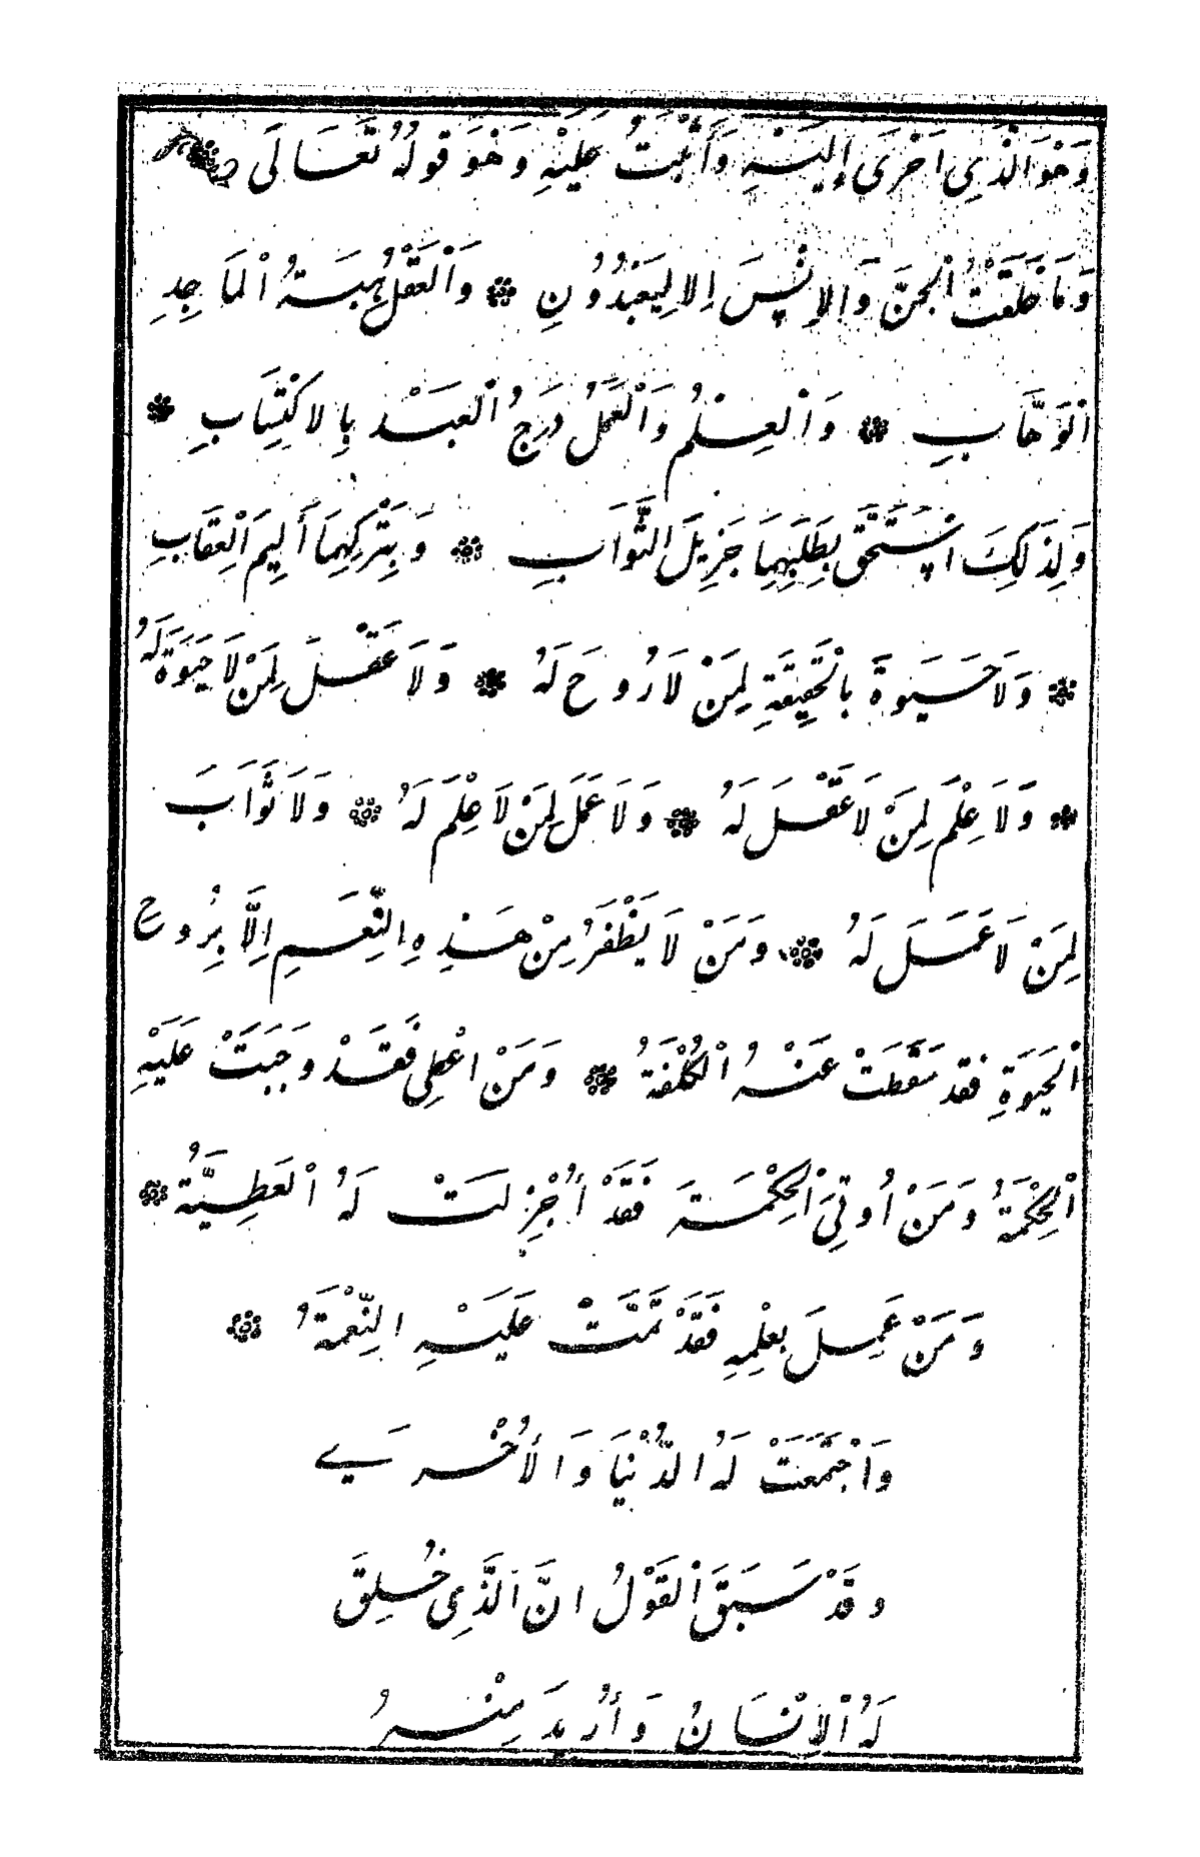 وَهُوَ الَّذِي أَجْرَى إِلَيْهِ وَأَثْبَتُ عَلَيْهِ وَهُوَ قَوْلُهُ تَعَالَى
وَمَا خَلَقْتُ الْجِنَّ وَالْاِنْسَ اِلَّا لِيَعْبُدُونِ ❊ وَالْعَقْلُ هِبَةُ الْمَاجِدِ
الْوَهَّابِ ❊ وَالْعِلْمُ وَالْعَمَلُ دَرَجُ الْعَبْدِ بِالاكْتِسَابِ ❊
وَلِذَلِكَ اسْتَحَقَّ بِطَلَبِهِمَا جَزِيلَ الثَّوَابِ ❊ وَبِتَرْكِهِمَا أَلِيمَ الْعِقَابِ
❊ وَلَا حَيَوةَ بِالْحَقِيقَةِ لِمَنْ لَا رُوحَ لَهُ ❊ وَلَا عَقْلَ لِمَنْ لَا حَيَوةَ لَهُ
❊ وَلَا عِلْمَ لِمَنْ لَا عَقْلَ لَهُ ❊ وَلَا عَمَلَ لِمَنْ لَا عِلْمَ لَهُ ❊ وَلَا ثَوَابَ
لِمَنْ لَا عَمَلَ لَهُ ❊ وَمَنْ لَا يَظْفَرُ مِنْ هَذِهِ النِّعَمِ اِلَّا بِرُوحِ
الْحَيَوةِ فقد سَقَطَتْ عَنْهُ الْكُلْفَةُ ❊ وَمَنْ اعْطِى فَقَدْ وَجَبَتْ عَلَيْهِ
الْحِكْمَةُ وَمَنْ اُوتِيَ الْحِكْمَةَ فَقَدْ أُجْزِلَتْ لَهُ الْعَطِيَّةُ ❊
وَمَنْ عَمِلَ بِعِلْمِهِ فَقَدْ تَمَّتْ عَلَيْهِ النِّعْمَةُ ❊
وَاجْتَمَعَتْ لَهُ الدُّنْيَا وَالأُخْرَى
وقَدْ سَبَقَ الْقَوْلُ انَّ الَّذِي خُلِقَ
لَهُ الْاِنْسَانُ وَأُرِيدَ مِنْهُ